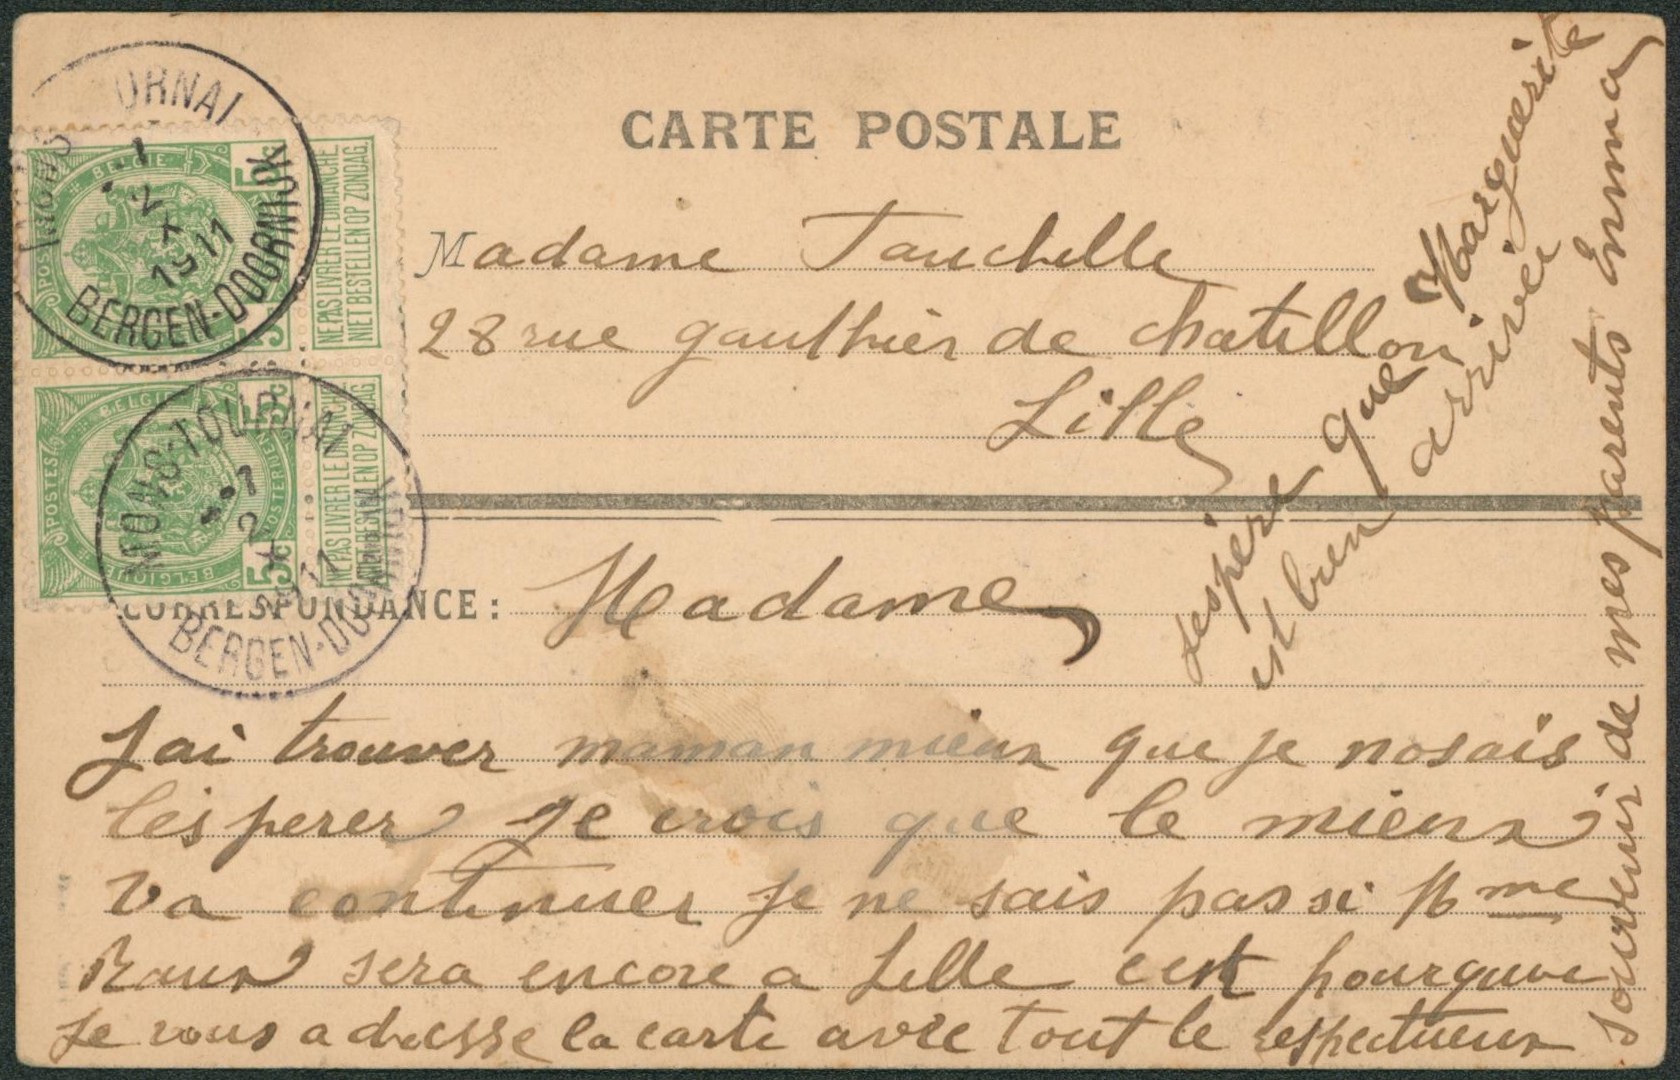 CARTE POSTALE
Madame Tauchelle
28 rue gaulthier de chatillon
Lille
CORRESPONDANCE :
Madame
Jai trouver maman mieux que je nosais
lésperer je crois que le mieux
va continuer je ne sais pas si Mme
Raux sera encore a Lille cest pourquoi
Je vous adresse la carte avec tout le respectueux
souvenir de mes parents Emma
Jespère que Marguerite
est bien arrivée
MONS-TOURNAI
1
2
X
1911
BERGEN-DOORNIJK
POSTES
BELGIE
5c
NE PAS LIVRER LE DIMANCHE.
NIET BESTELLEN OP ZONDAG.
MONS-TOURNAI
1
2
X
1911
BERGEN-DOORNIJK
POSTES
BELGIE
POSTERIJEN
BELGIQUE
5c
5c
NE PAS LIVRER LE DIMANCHE
NIET BESTELLEN OP ZONDAG